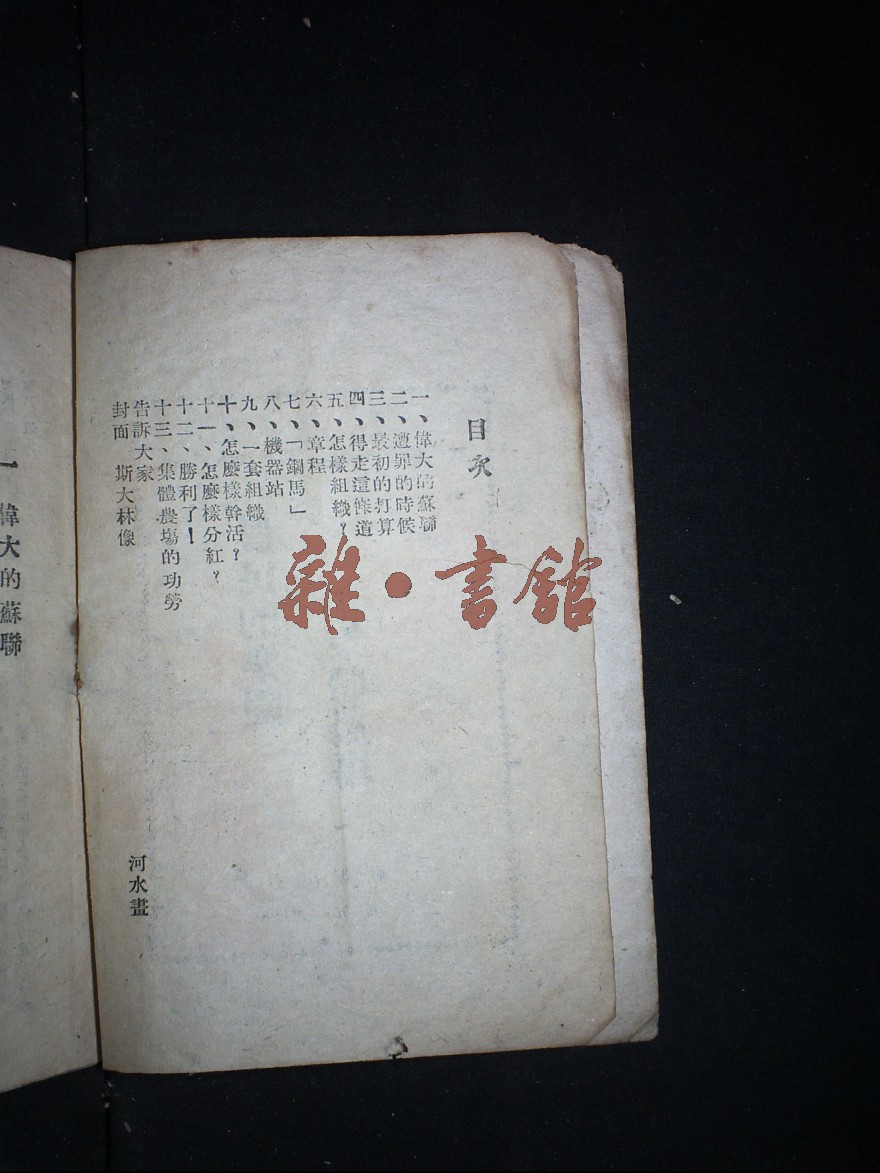 目次
一、偉大的蘇聯
二、遭罪的時候
三、最初的打算
四、得走這條道
五、怎樣組織？
六、章程
七、「鋼馬」
八、機器站
九、一套組織
十、怎麼樣幹活？
十一、怎麼樣分紅？
十二、勝利了！
十三、集體農場的功勞
告訴大家
封面　斯大林像　河水畫
一　偉大的蘇聯
雜·書館